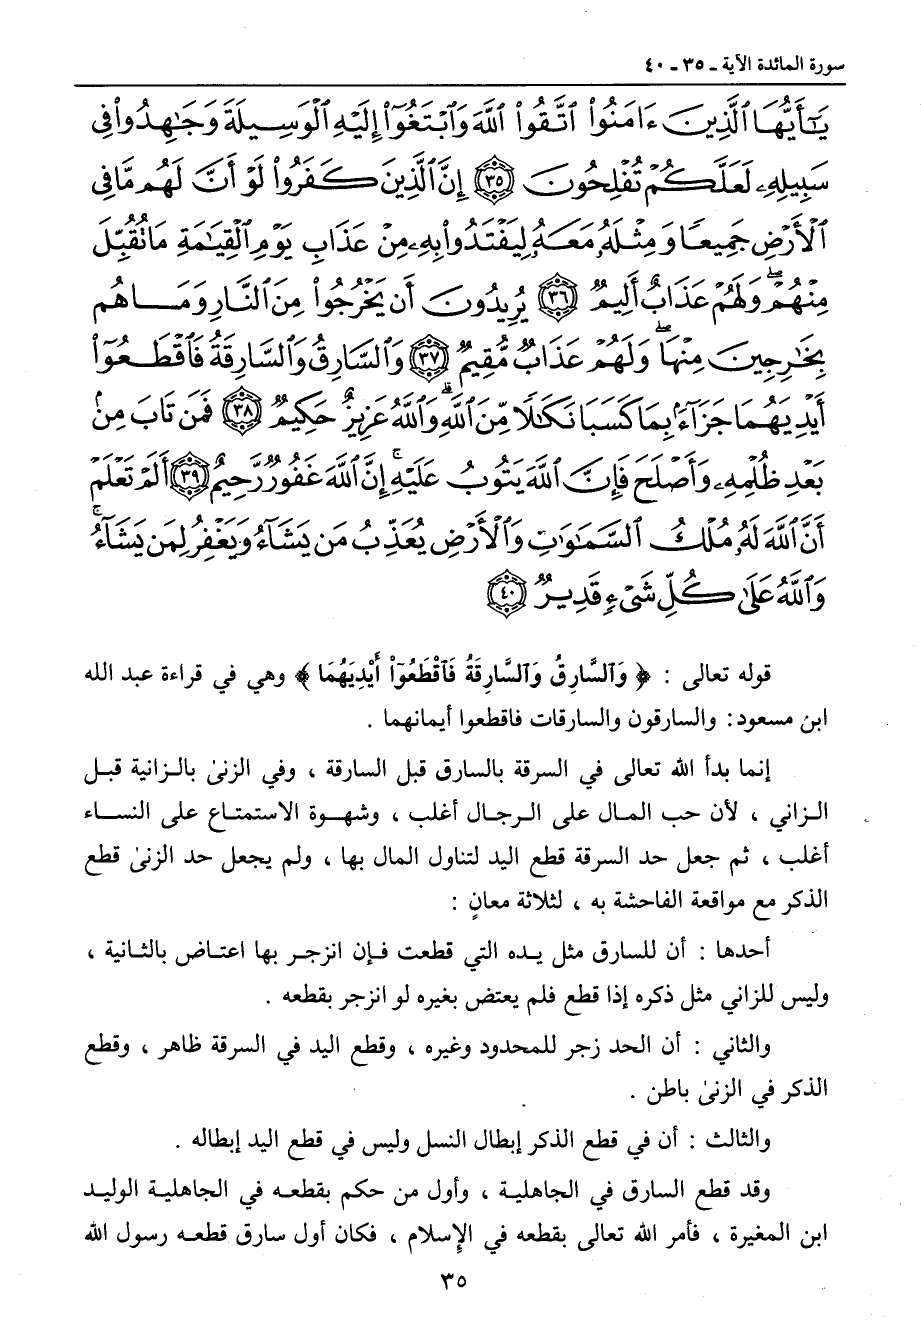 سورة المائدة الآية ـ ٣٥ ـ ٤٠
يَـٰٓأَيُّهَا ٱلَّذِينَ ءَامَنُوا۟ ٱتَّقُوا۟ ٱللَّهَ وَٱبْتَغُوٓا۟ إِلَيْهِ ٱلْوَسِيلَةَ وَجَـٰهِدُوا۟ فِى
سَبِيلِهِۦ لَعَلَّكُمْ تُفْلِحُونَ ٣٥ إِنَّ ٱلَّذِينَ كَفَرُوا۟ لَوْ أَنَّ لَهُم مَّا فِى
ٱلْأَرْضِ جَمِيعًا وَمِثْلَهُۥ مَعَهُۥ لِيَفْتَدُوا۟ بِهِۦ مِنْ عَذَابِ يَوْمِ ٱلْقِيَـٰمَةِ مَا تُقُبِّلَ
مِنْهُمْ ۖ وَلَهُمْ عَذَابٌ أَلِيمٌ ٣٦ يُرِيدُونَ أَن يَخْرُجُوا۟ مِنَ ٱلنَّارِ وَمَا هُم
بِخَـٰرِجِينَ مِنْهَا ۖ وَلَهُمْ عَذَابٌ مُّقِيمٌ ٣٧ وَٱلسَّارِقُ وَٱلسَّارِقَةُ فَٱقْطَعُوٓا۟
أَيْدِيَهُمَا جَزَآءًۢ بِمَا كَسَبَا نَكَـٰلًا مِّنَ ٱللَّهِ ۗ وَٱللَّهُ عَزِيزٌ حَكِيمٌ ٣٨ فَمَن تَابَ مِنۢ
بَعْدِ ظُلْمِهِۦ وَأَصْلَحَ فَإِنَّ ٱللَّهَ يَتُوبُ عَلَيْهِ ۚ إِنَّ ٱللَّهَ غَفُورٌ رَّحِيمٌ ٣٩ أَلَمْ تَعْلَمْ
أَنَّ ٱللَّهَ لَهُۥ مُلْكُ ٱلسَّمَـٰوَٰتِ وَٱلْأَرْضِ يُعَذِّبُ مَن يَشَآءُ وَيَغْفِرُ لِمَن يَشَآءُ ۗ
وَٱللَّهُ عَلَىٰ كُلِّ شَىْءٍ قَدِيرٌ ٤٠
قوله تعالى : ﴿ وَٱلسَّارِقُ وَٱلسَّارِقَةُ فَٱقْطَعُوٓا۟ أَيْدِيَهُمَا ﴾ وهي في قراءة عبد الله
ابن مسعود: والسارقون والسارقات فاقطعوا أيمانهما .
إنما بدأ الله تعالى في السرقة بالسارق قبل السارقة ، وفي الزنىٰ بالزانية قبل
الزاني ، لأن حب المال على الرجال أغلب ، وشهوة الاستمتاع على النساء
أغلب ، ثم جعل حد السرقة قطع اليد لتناول المال بها ، ولم يجعل حد الزنىٰ قطع
الذكر مع مواقعة الفاحشة به ، لثلاثة معانٍ :
أحدها : أن للسارق مثل يده التي قطعت فإن انزجر بها اعتاض بالثانية ،
وليس للزاني مثل ذكره إذا قطع فلم يعتض بغيره لو انزجر بقطعه .
والثاني : أن الحد زجر للمحدود وغيره ، وقطع اليد في السرقة ظاهر ، وقطع
الذكر في الزنىٰ باطن .
والثالث : أن في قطع الذكر إبطال النسل وليس في قطع اليد إبطاله .
وقد قطع السارق في الجاهلية ، وأول من حكم بقطعه في الجاهلية الوليد
ابن المغيرة ، فأمر الله تعالى بقطعه في الإسلام ، فكان أول سارق قطعه رسول الله
٣٥